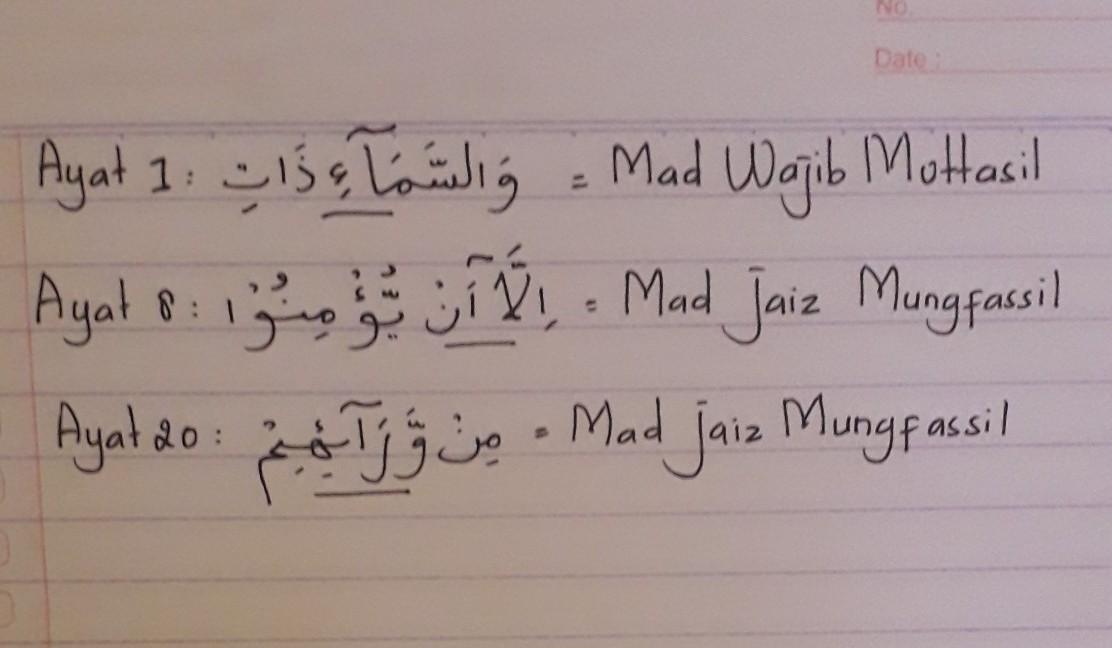 No.
Date :
Ayat 1 : وَالسَّمَآءِ ذَاتِ = Mad Wajib Mottasil
Ayat 8 : اِلَّآ اَنْ يُّؤْمِنُوْا = Mad jaiz Mungfassil
Ayat 20 : مِنْ وَّرَآئِهِمْ = Mad jaiz Mungfassil